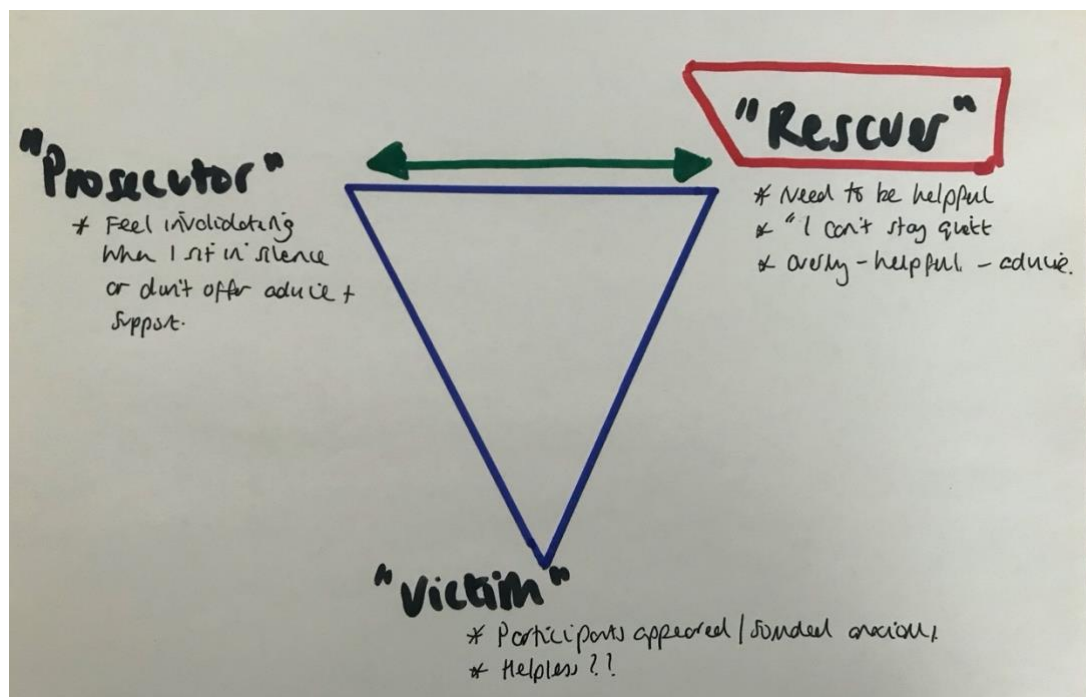 "Prosecutor"
* Feel invalidating
when I sit in silence
or don't offer advice +
support.
"Rescuer"
* Need to be helpful
* "I can't stay quiet
* overly-helpful - advice.
"Victim"
* Participants appeared/sounded anxious,
* Helpless??